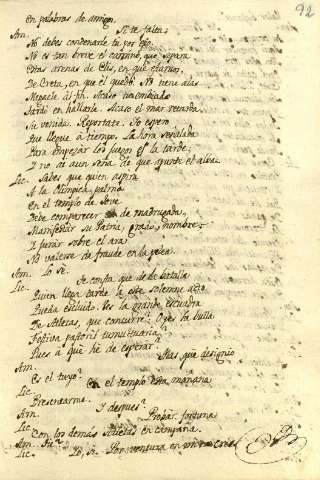 92
en palabras de amigo.
Am. Si te falta,
No debes condenarle tu por ello.
No es tan breve el camino, que separa
Estas arenas de Elis, en que estamos,
De Creta, en que el quedó. No tiene alas
Megacle al fin. Acaso
Tardó en hallarle. Acaso el mar retarda
Su venida. Reportate. Yo espero
Que llegue a tiempo. La hora señalada
Para empezar los juegos es la tarde;
I no dà aun seña de que apunte el alva.
Lic. Sabes que quien aspira
A la Olimpica palma
En el templo de Jove
Debe comparecer de madrugada,
Manifestar su Patria, grado, nombre;
I jurar sobre el ara
No valerse de fraude en la pelea.
Am. Lo sé.
Lic. Te consta que de la batalla
Quien llega tarde à este solemne acto
Queda escluido. Ves la grande escuadra
De Atletas, que concurre? Oyes la bulla
Festiva pastoril tumultuaria?
Pues a qué he de esperar?
Am. Mas que designio
Es el tuyo?
Lic. En el templo esta mañana
Presentarme.
Am. I despues?
Lic. Probar fortuna
Con los demás Atletas en campaña.
Am. Tu?
Lic. Yo, si.